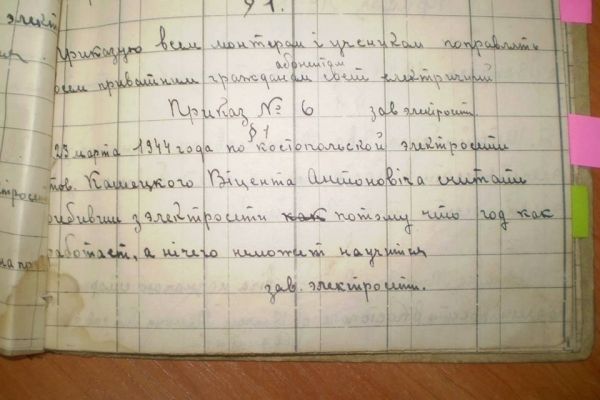 § 1.
приказую всем монтерам і ученикам поправлять
абонентам
всем приватним гражданам свет електричний
Приказ № 6 зав электросет.
§ 1
23 марта 1944 года по костопольской электросети
тов. Кашецкого Віцента Антоновіча считати
прибивши з электросети как потому что год как
работает, а нічего неможет научится
зав. электросети.